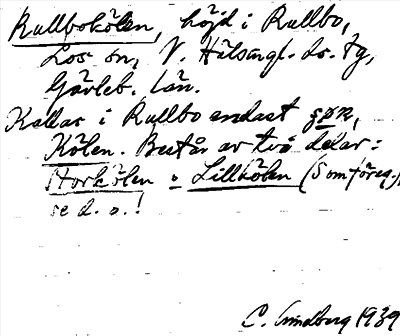 Rullbokölen, höjd i Rullbo,
Los sn, V. Hälsingl. ds. tg,
Gävleb. län.
Kallas i Rullbo endast
Kölen. Består av två delar:
Storkölen o Lillkölen (Som föreg.),
se d. o.!
C. Lindberg 1939